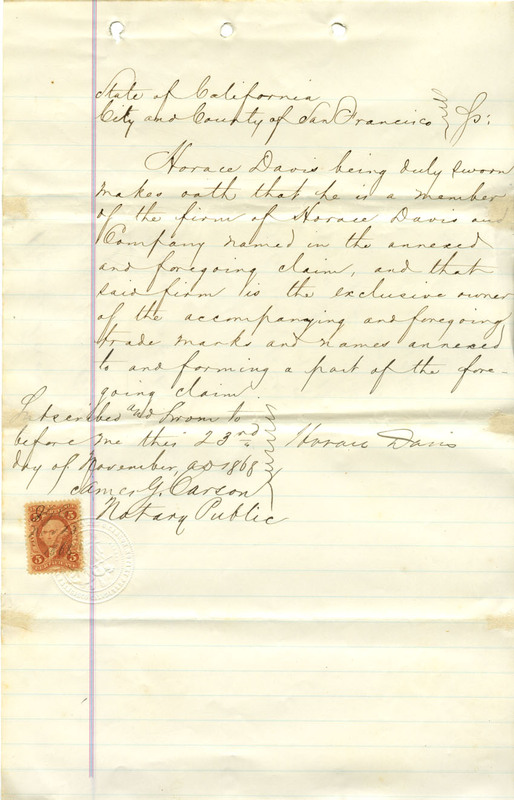 State of California
City and County of San Francisco } Ss:
Horace Davis being duly sworn
makes oath that he is a member
of the firm of Horace Davis and
Company named in the annexed
and foregoing claim, and that
said firm is the exclusive owner
of the accompanying and foregoing
trade marks and names annexed
to and forming a part of the fore-
going claim
Subscribed and Sworn to
before me this 23rd
day of November, AD 1868
James G. Carson
Notary Public
Horace Davis
5 5
5 5